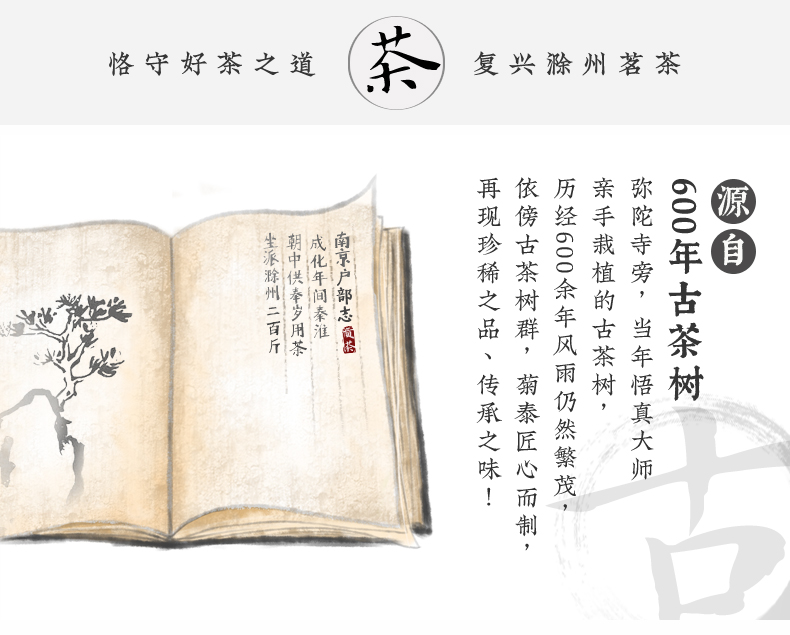 恪守好茶之道
茶
复兴滁州茗茶
源自
600年古茶树
弥陀寺旁，当年悟真大师
亲手栽植的古茶树，
历经600余年风雨仍然繁茂，
依傍古茶树群，菊泰匠心而制，
再现珍稀之品、传承之味！
南京户部志
贡茶
成化年间奏淮
朝中供奉岁用茶
坐派滁州二百斤
古